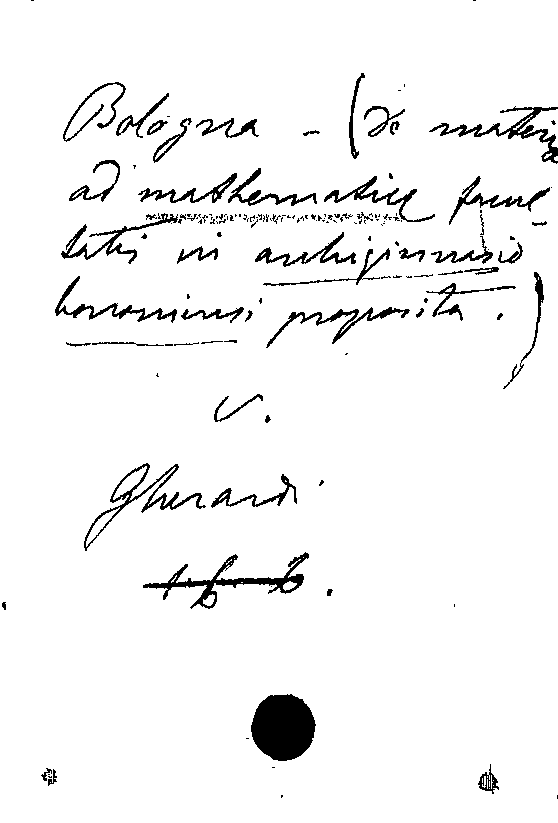 Bologna - (De materia
ad mathematice facul-
tatis in archiginnasio
bononiensi proposita.)
v.
Gherardi